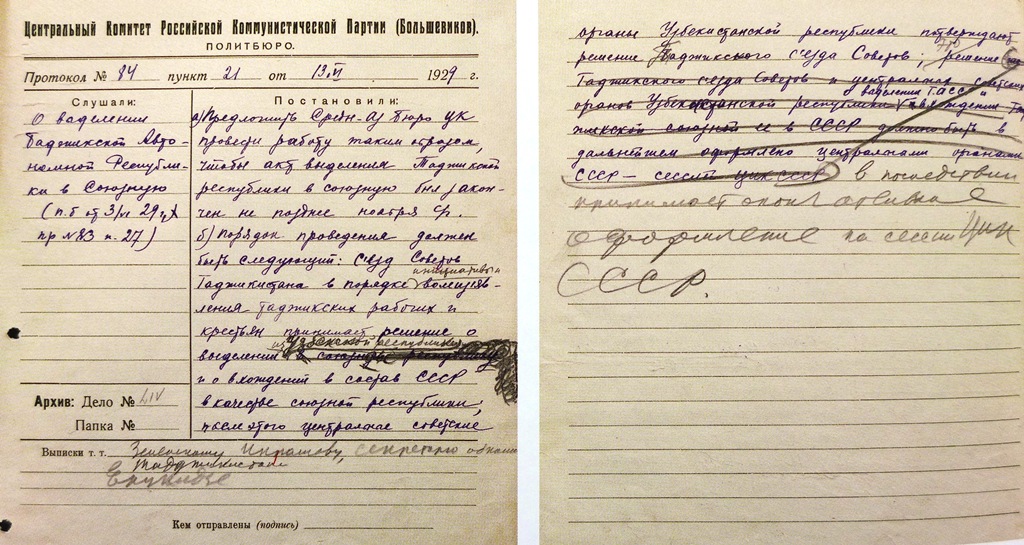 Центральный Комитет Российской Коммунистической Партии (Большевиков).
ПОЛИТБЮРО.
Протокол № 84 пункт 21 от 13.VI. 1929 г.
Слушали:
О выделении
Таджикской Авто-
номной Республи-
ки в Союзную
(п.б от 3/VI 29 г.
пр №83 п. 27)
Архив: Дело № LIV
Папка №
Постановили:
а) Предложить Средн-Аз Бюро ЦК
провести работу таким образом,
чтобы акт выделения Таджикской
республики в союзную был закон-
чен не позднее ноября
б) Порядок проведения должен
быть следующий: Съезд Советов
инициативы и
Таджикистана в порядке волеизъяв-
ления таджикских рабочих и
крестьян принимает решение о
из Узбекской республики
выделении в союзную республику
и о вхождении в состав СССР
в качестве союзной республики;
после этого центральные советские
Выписки т. т. Зеленскому, Икрамову, секретарю
Таджикистан
Енукидзе
Кем отправлены (подпись)
органы Узбекистанской республики подтверждают
решение Таджикского съезда Советов; решение
это
Таджикского съезда Советов и центральных советских
органов Узбекистанской республики о выделении ТАССР и
вхождении Тад-
жикской союзной в СССР должно быть в
дальнейшем оформлено центральными органами
СССР – сессией ЦИК СССР в последствии
принимает окончательное
оформление на сессии ЦИК
СССР.